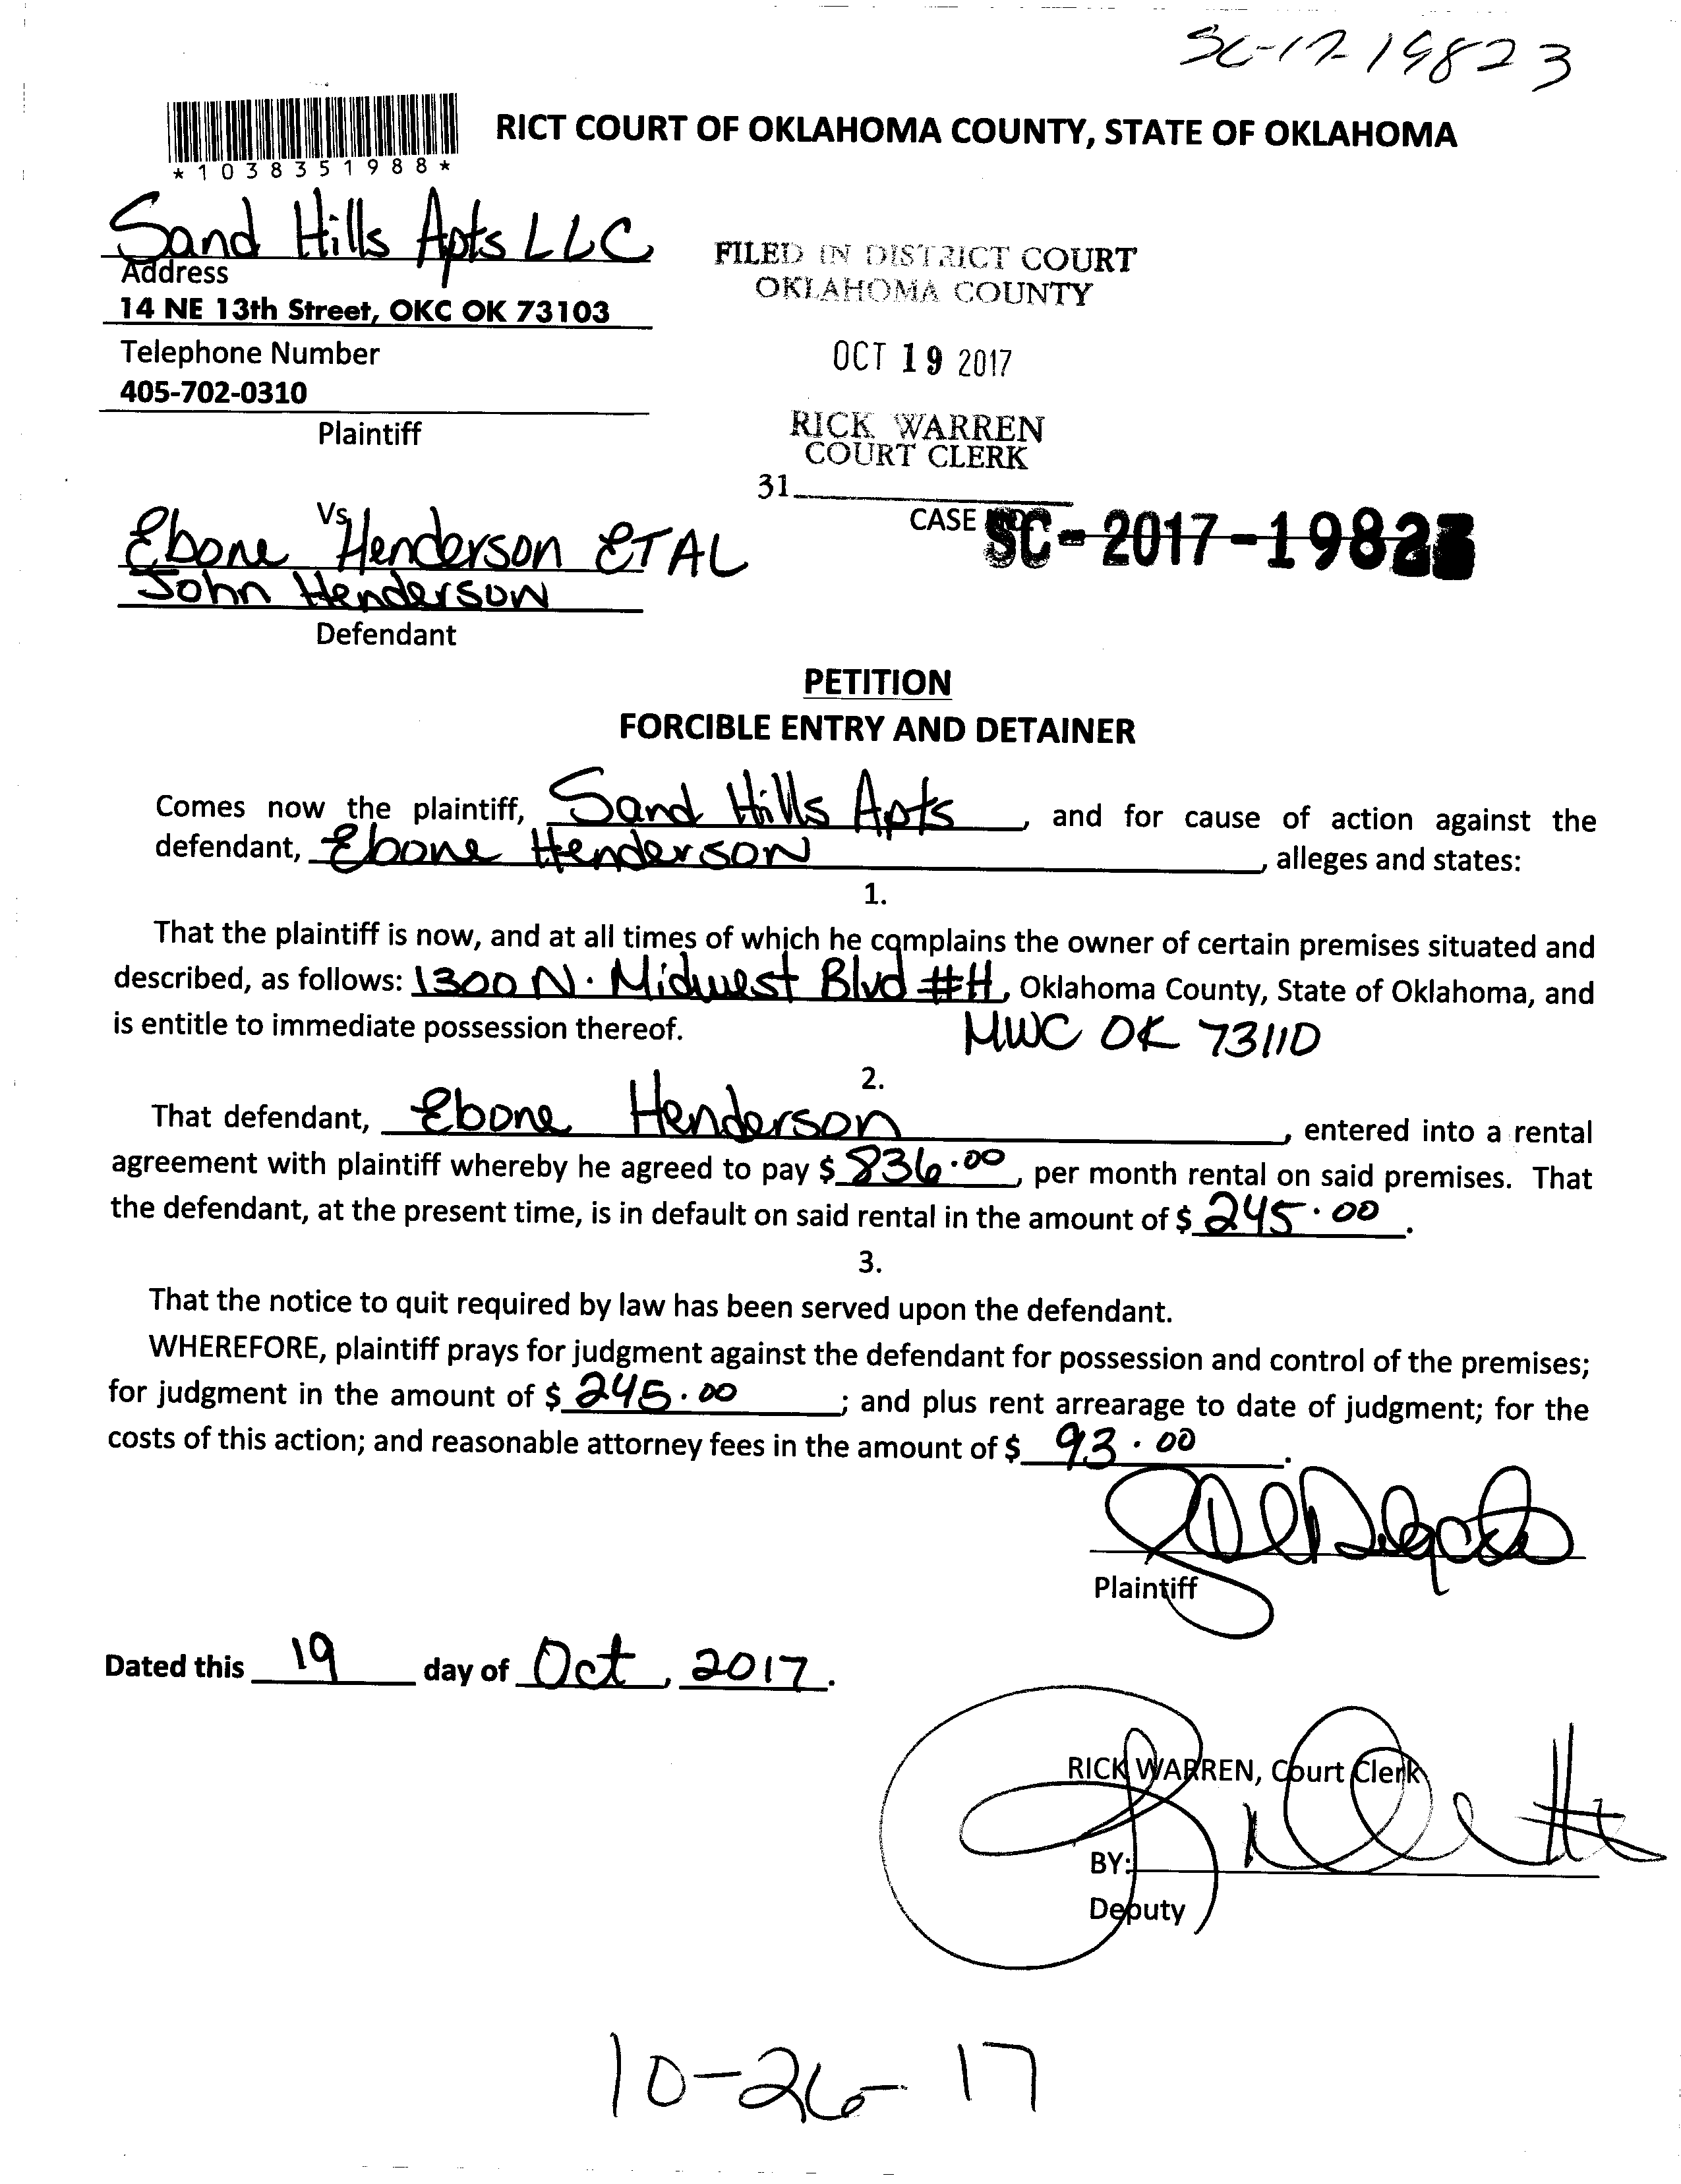 SC-17-19823
RICT COURT OF OKLAHOMA COUNTY, STATE OF OKLAHOMA
*1038351988*
Sand Hills Apts LLC
Address
14 NE 13th Street, OKC OK 73103
Telephone Number
405-702-0310
Plaintiff
FILED IN DISTRICT COURT
OKLAHOMA COUNTY
OCT 19 2017
RICK WARREN
COURT CLERK
31
CASE SC-2017-19823
Vs
Ebone Henderson ETAL
John Henderson
Defendant
PETITION
FORCIBLE ENTRY AND DETAINER
Comes now the plaintiff, Sand Hills Apts, and for cause of action against the
defendant, Ebone Henderson, alleges and states:
1.
That the plaintiff is now, and at all times of which he complains the owner of certain premises situated and
described, as follows: 1300 N. Midwest Blvd #H, Oklahoma County, State of Oklahoma, and
is entitle to immediate possession thereof. MWC OK 73110
2.
That defendant, Ebone Henderson, entered into a rental
agreement with plaintiff whereby he agreed to pay $ 836.00, per month rental on said premises. That
the defendant, at the present time, is in default on said rental in the amount of $ 245.00.
3.
That the notice to quit required by law has been served upon the defendant.
WHEREFORE, plaintiff prays for judgment against the defendant for possession and control of the premises;
for judgment in the amount of $ 245.00; and plus rent arrearage to date of judgment; for the
costs of this action; and reasonable attorney fees in the amount of $ 93.00.
Plaintiff
Dated this 19 day of Oct, 2017.
RICK WARREN, Court Clerk
BY:
Deputy
10-26-17